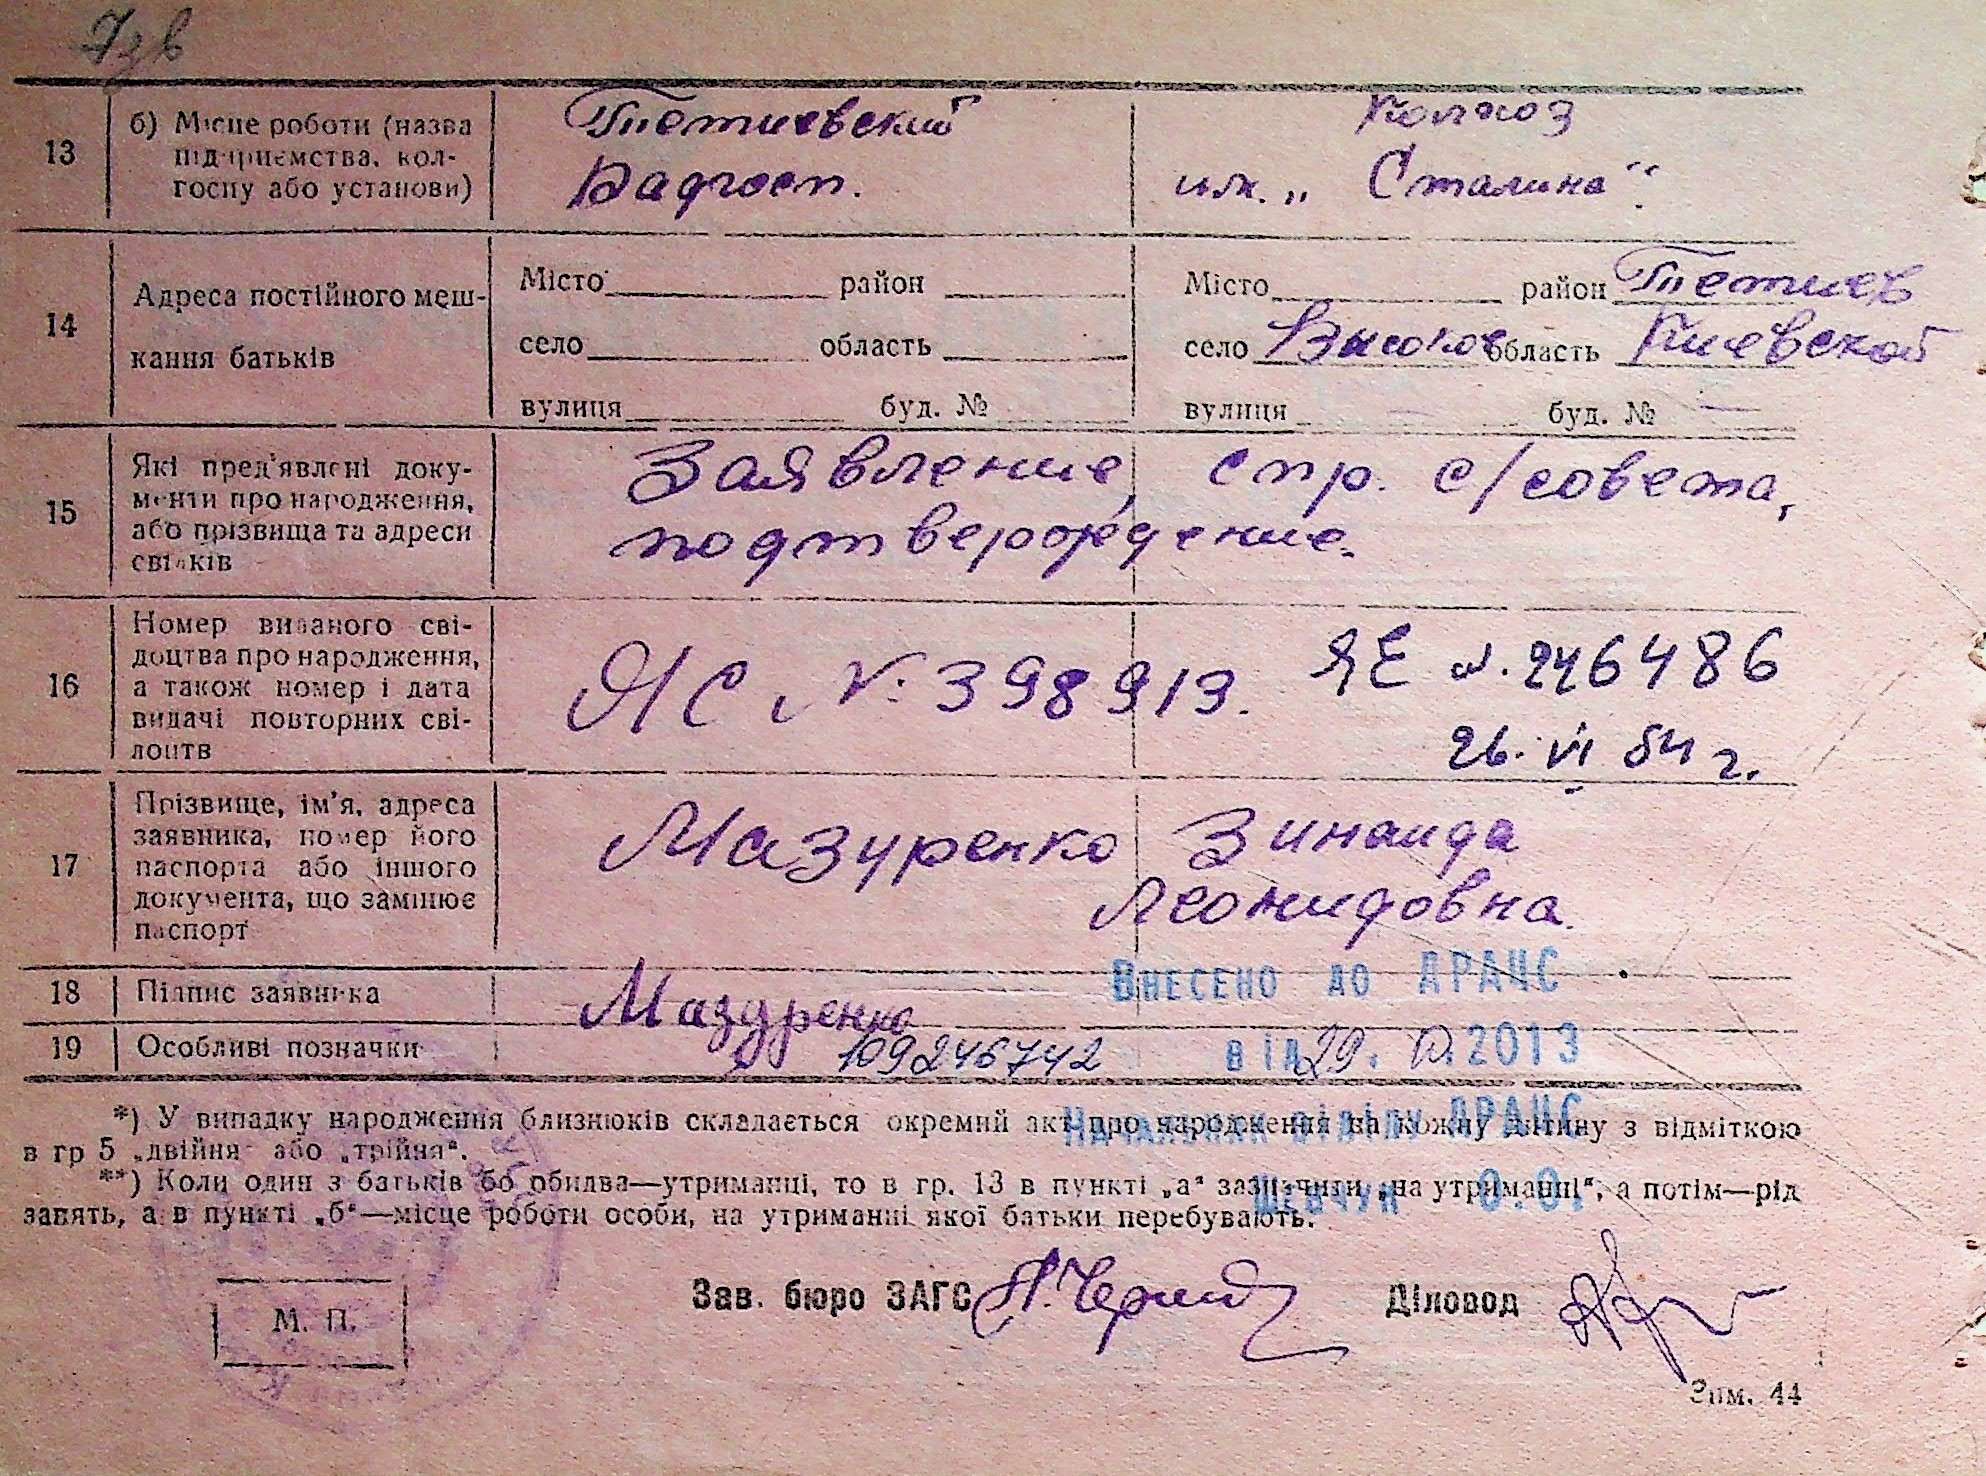 13
б) Місце роботи (назва
підприємства, кол-
госпу або установи)
Тетиевский
Радгосп.
Колхоз
им. „Сталина"
14
Адреса постійного меш-
кання батьків
Місто район
село область
вулиця буд. №
Місто район Тетиев
село Высокое область Киевской
вулиця буд. №
15
Які пред'явлені доку-
менти про народження,
або прізвища та адреси
свідків
Заявление, спр. с/совета,
подтверждение.
16
Номер виданого сві-
доцтва про народження,
а також номер і дата
видачі повторних сві-
доцтв
ЯС № 398913.
ЯЕ №. 246486
26. VI 54 г.
17
Прізвище, ім'я, адреса
заявника, номер його
паспорта або іншого
документа, що замінює
паспорт
Мазуренко Зинаида
Леонидовна.
18
Підпис заявника
Мазуренко
Внесено до ДРАЦС
19
Особливі позначки
109246742
від 29. 10. 2013
*) У випадку народження близнюків складається окремий акт про народження на кожну дитину з відміткою
в гр 5 „двійня" або „трійня".
Начальник відділу ДРАЦС
**) Коли один з батьків бо обидва—утриманці, то в гр. 13 в пункті „а" зазначити „на утриманні", а потім—рід
занять, а в пункті „б"—місце роботи особи, на утриманні якої батьки перебувають.
Шевчук О.О.
М. П.
Зав. бюро ЗАГС
Діловод
Зам. 44